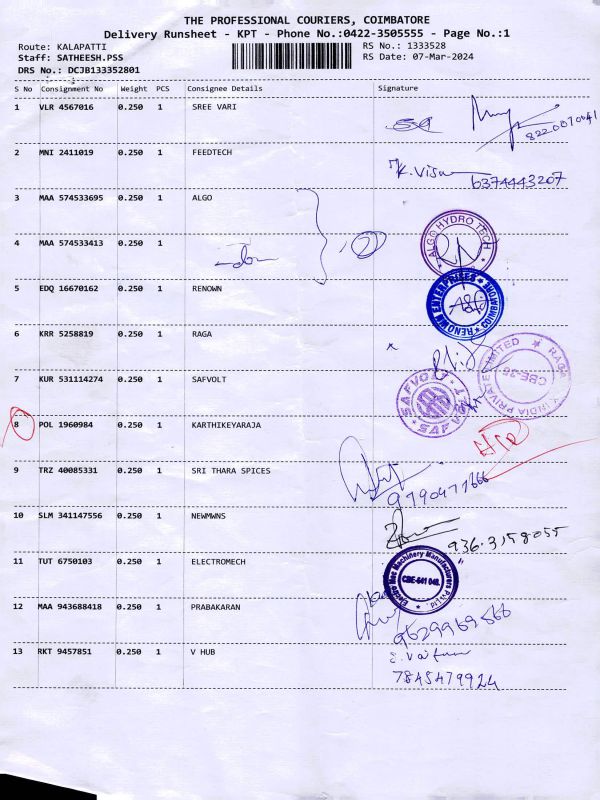 THE PROFESSIONAL COURIERS, COIMBATORE
Delivery Runsheet - KPT - Phone No.:0422-3505555 - Page No.:1
Route: KALAPATTI
RS No.: 1333528
Staff: SATHEESH.PSS
RS Date: 07-Mar-2024
DRS No.: DCJB133352801
S No Consignment No Weight PCS Consignee Details Signature
1 VLR 4567016 0.250 1 SREE VARI
8220070041
2 MNI 2411019 0.250 1 FEEDTECH
6374443207
3 MAA 574533695 0.250 1 ALGO
ALGO HYDRO TECH
4 MAA 574533413 0.250 1
5 EDQ 16670162 0.250 1 RENOWN
RENOWN ENTERPRISES
6 KRR 5258819 0.250 1 RAGA
CBE-35
7 KUR 531114274 0.250 1 SAFVOLT
SAFVOLT
8 POL 1960984 0.250 1 KARTHIKEYARAJA
9 TRZ 40085331 0.250 1 SRI THARA SPICES
9790477666
10 SLM 341147556 0.250 1 NEWMWNS
936.3158055
11 TUT 6750103 0.250 1 ELECTROMECH
CBE-641 048.
12 MAA 943688418 0.250 1 PRABAKARAN
9629969566
13 RKT 9457851 0.250 1 V HUB
7845479924